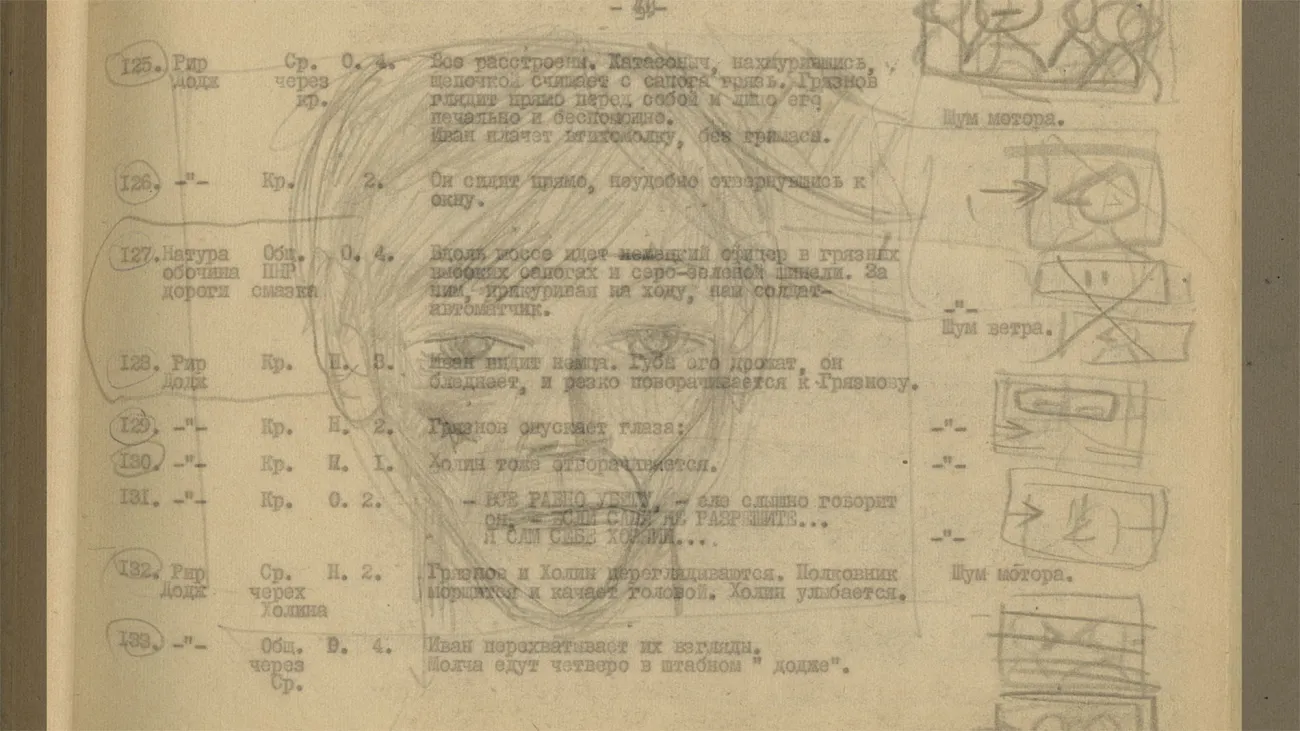 125. Рир Ср. О. 4. Все расстроены. Катасоныч, нахмурившись,
Додж через щепочкой счищает с сапога грязь. Грязнов
кр. глядит прямо перед собой и лицо его
печально и беспокойно. Шум мотора.
Иван плачет втихомолку, без гримаса.
126. -"- Кр. 2. Он сидит прямо, неудобно отвернувшись к
окну.
127. Натура Общ. О. 4. Вдоль шоссе идет немецкий офицер в грязных
обочина ПНР высоких сапогах и серо-зеленой шинели. За
дороги смазка ним, прикуривая на ходу, солдат-
автоматчик. -"-
Шум ветра.
128. Рир Кр. Н. 3. Иван видит немца. Губы его дрожат, он
Додж бледнеет, и резко поворачивается к Грязнову.
129. -"- Кр. Н. 2. Грязнов опускает глаза: -"-
130. -"- Кр. Н. 1. Холин тоже отворачивается. -"-
131. -"- Кр. О. 2. - ВСЕ РАВНО УБЕГУ, - еле слышно говорит
он. - ЕСЛИ САМИ НЕ РАЗРЕШИТЕ...
Я САМ СЕБЕ ХОЗЯИН.... -"-
132. Рир Ср. Н. 2. Грязнов и Холин переглядываются. Полковник Шум мотора.
Додж черех морщится и качает головой. Холин улыбается.
Холина
133. -"- Общ. О. 4. Иван перехватывает их взгляды.
через Молча едут четверо в штабном " додже".
Ср.